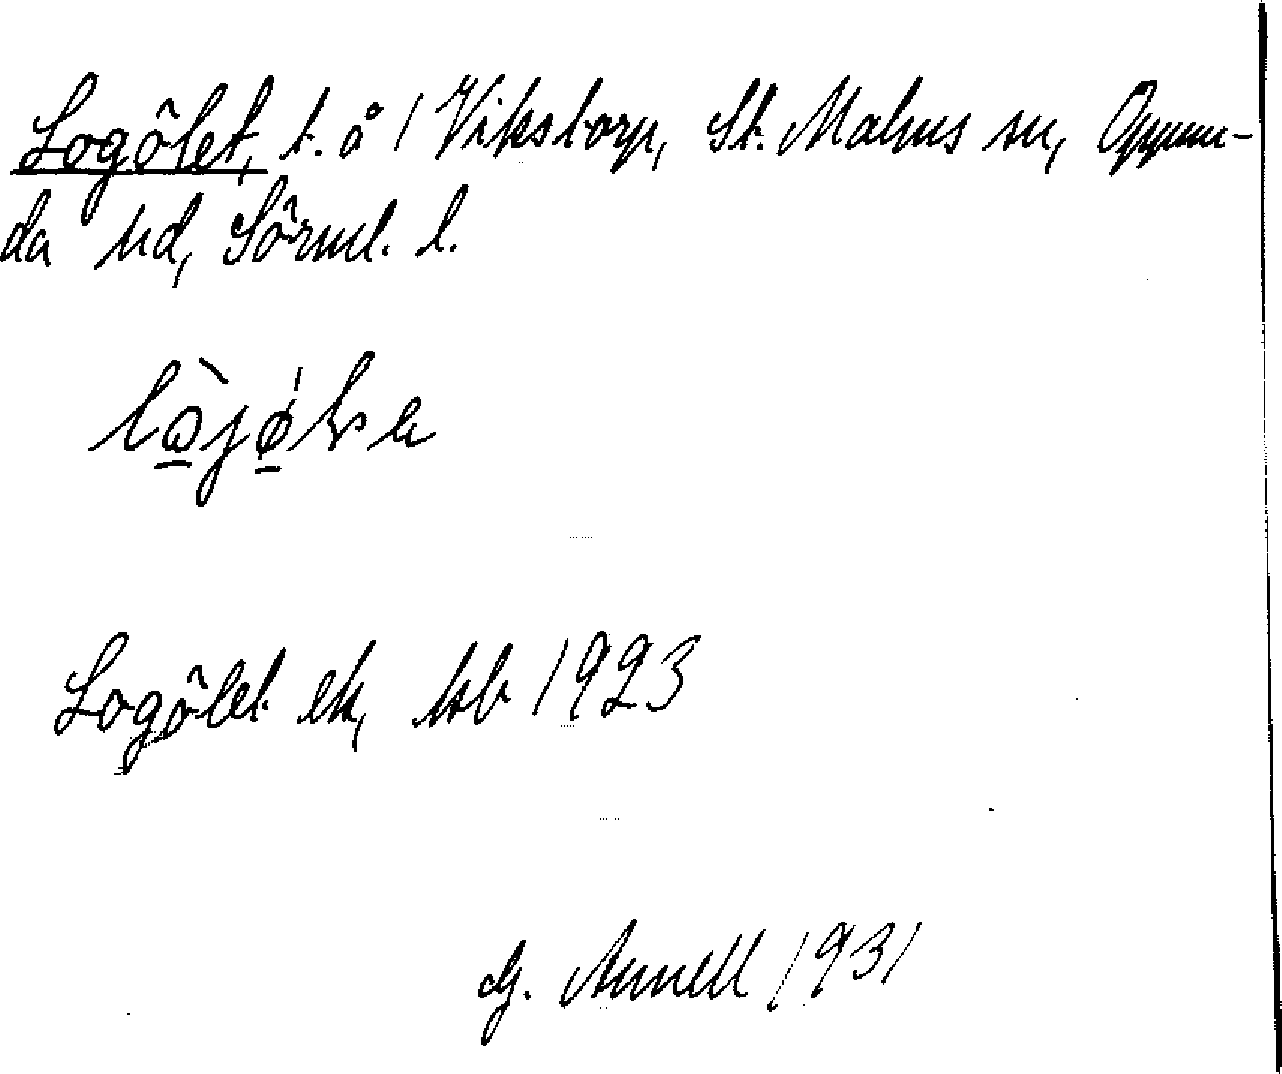 Logölet, t. å 1 Vikstorp, St. Malms sn, Oppun-
da hd, Sörml. l.
Logölet ek, kb 1923
G. Annell 1931